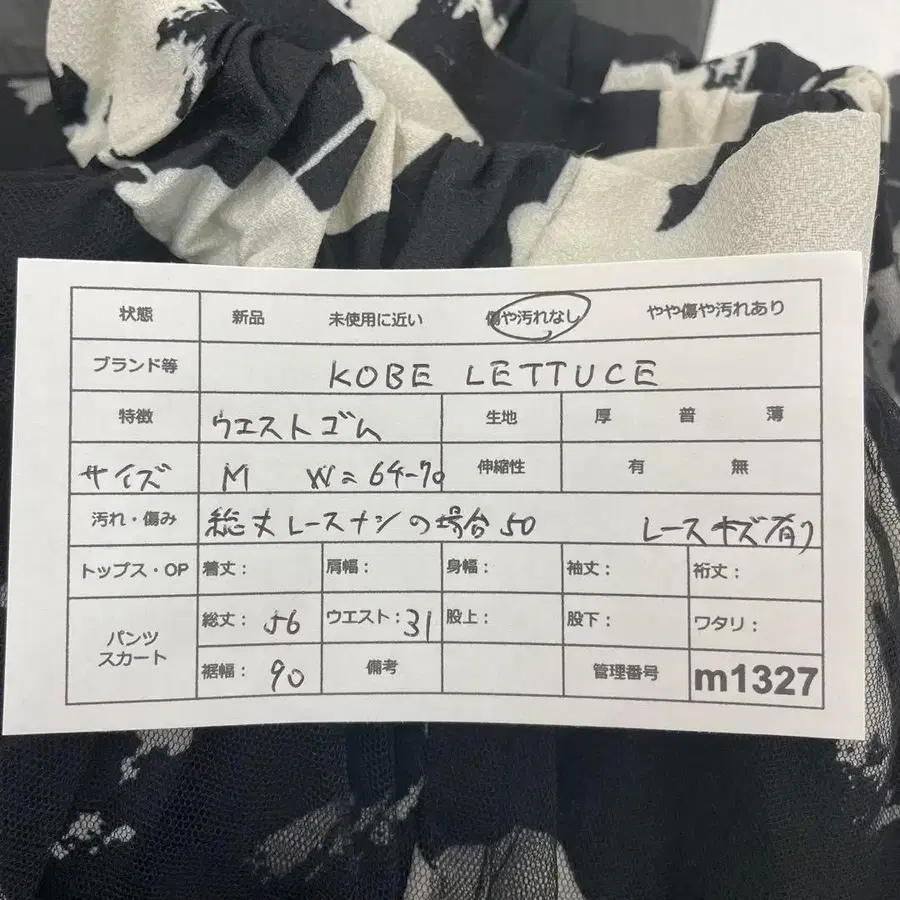 状態 新品 未使用に近い 傷や汚れなし やや傷や汚れあり
ブランド等 KOBE LETTUCE
特徴 ウエストゴム 生地 厚 普 薄
サイズ M W=64-70 伸縮性 有 無
汚れ・傷み 総丈レースナシの場合50 レースキズ有り
トップス・OP 着丈: 肩幅: 身幅: 袖丈: 裄丈:
パンツ スカート 総丈: 56 ウエスト: 31 股上: 股下: ワタリ:
裾幅: 90 備考 管理番号 m1327